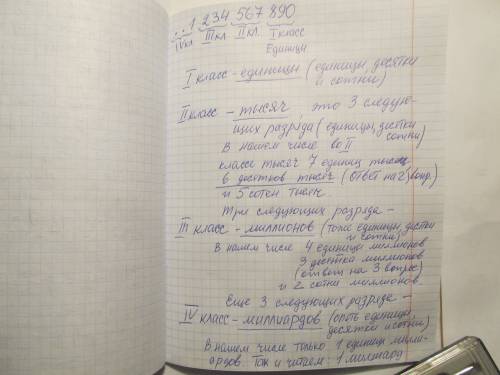 . . 1 234 567 890
IV кл. III кл. II кл. I класс
Единицы
I класс - единицы (единицы, десятки
и сотни)
II класс - тысяч это 3 следую-
щих разряда (единицы, десятки
сотни)
В нашем числе во II
классе тысяч 7 единиц тысяч
6 десятков тысяч (ответ на 2 вопр.)
и 5 сотен тысяч.
Три следующих разряда -
III класс - миллионов (тоже единицы, десятки
и сотни)
В нашем числе 4 единицы миллионов
3 десятка миллионов
(ответ на 3 вопрос)
и 2 сотни миллионов.
Еще 3 следующих разряда -
IV класс - миллиардов (опять единицы,
десятки и сотни)
В нашем числе только 1 единица милли-
ардов. Так и читаем: 1 миллиард